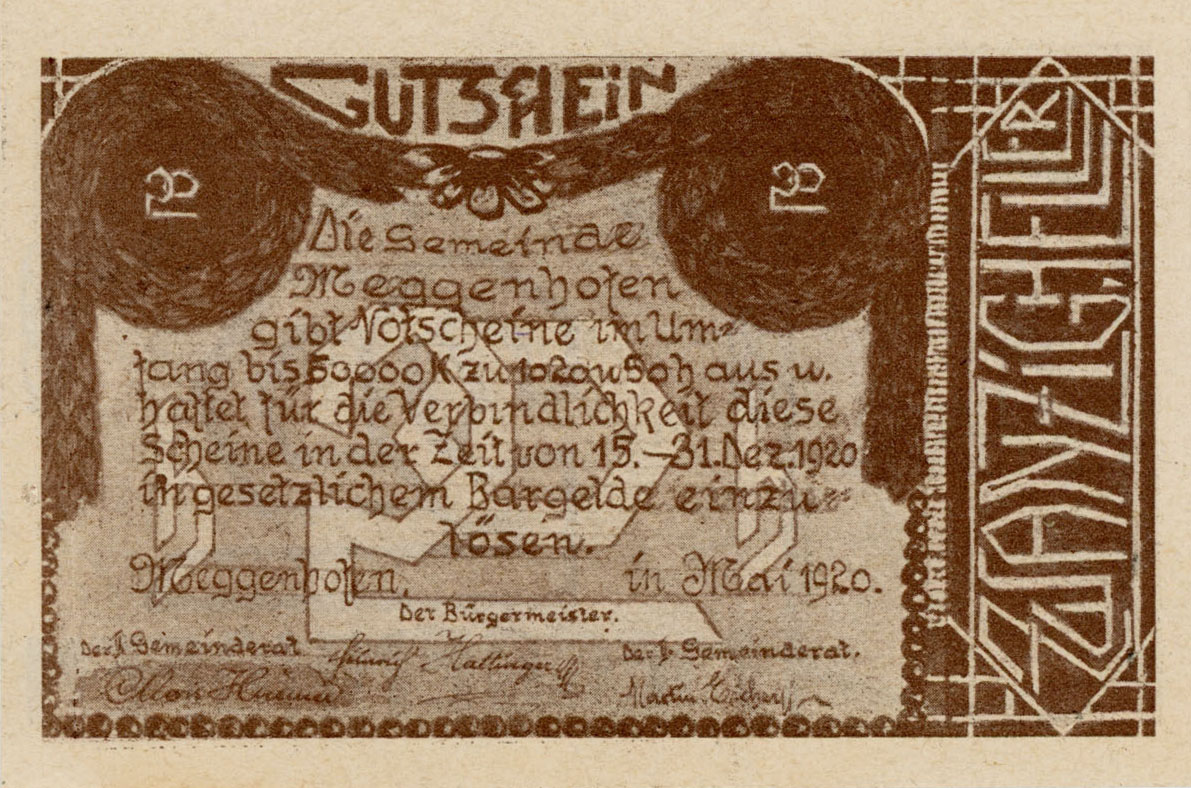 GUTSCHEIN
Die Gemeinde
Meggenhofen
gibt Notscheine im Um=
fang bis 50000 K zu 10 20 u 50 h aus u.
haftet für die Verbindlichkeit diese
Scheine in der Zeit von 15.–31. Dez. 1920
in gesetzlichem Bargelde einzu=
lösen.
Meggenhofen, in Mai 1920.
Der Bürgermeister.
Der II Gemeinderat. Der I. Gemeinderat.
Heinrich Hattinger
Martin
ZWANZIG HELLER
20